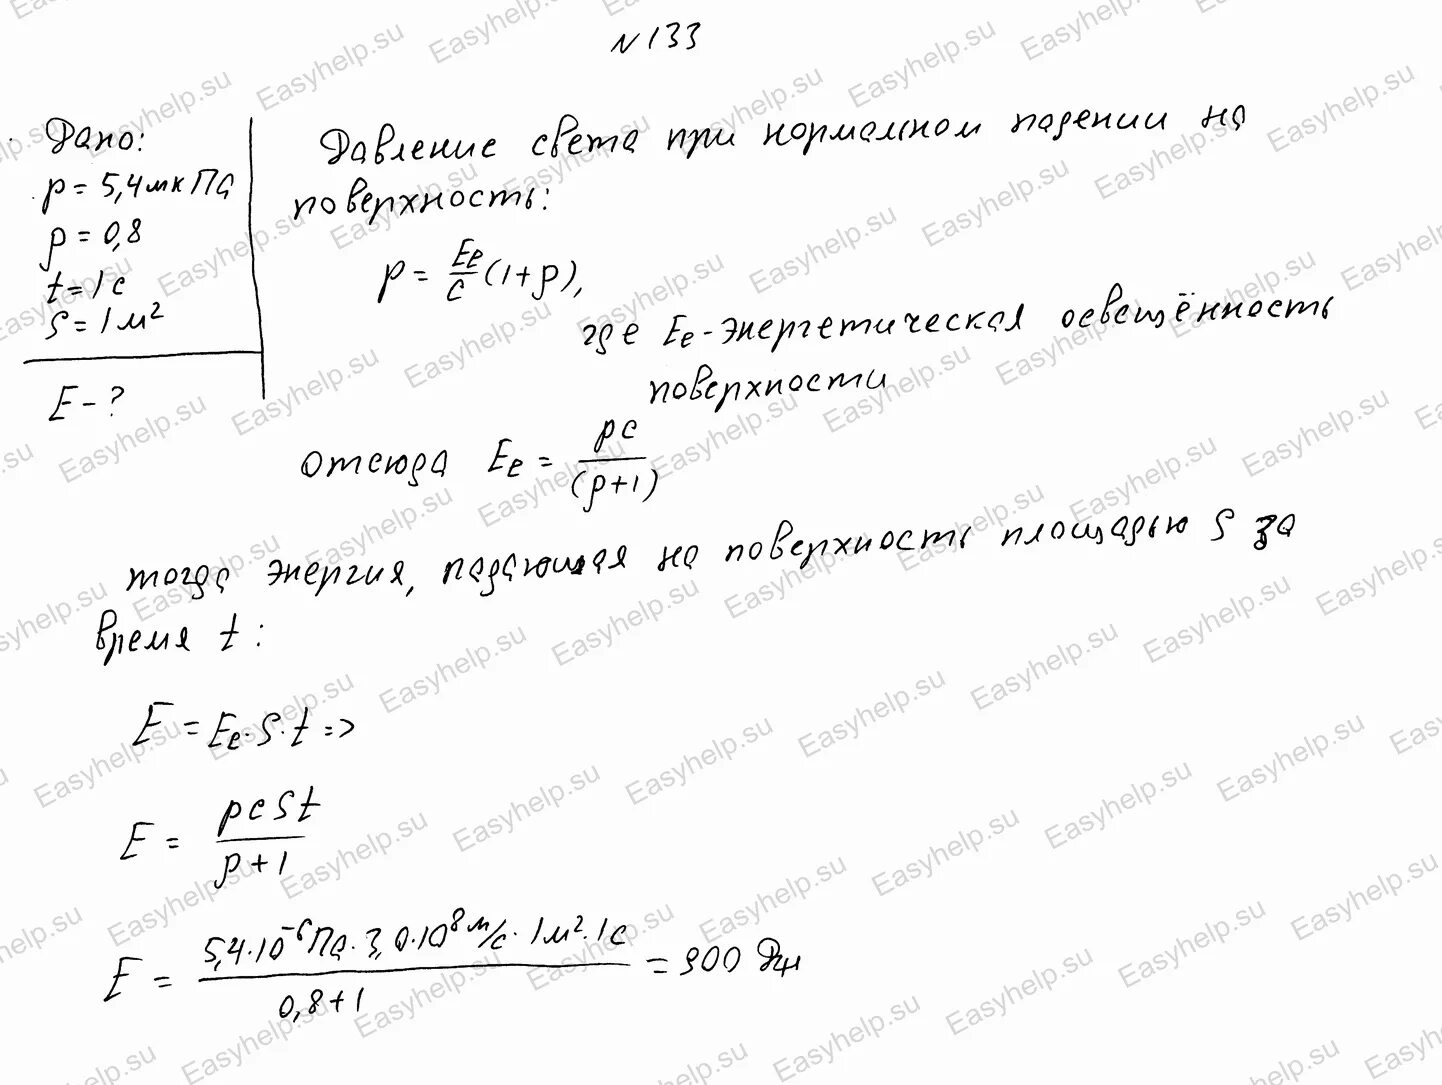 №133
Дано:
p = 5,4 мкПа
ρ = 0,8
t = 1 с
S = 1 м²
E - ?
Давление света при нормальном падении на
поверхность:
p = Ee/c (1+ρ),
где Ee - энергетическая освещённость
поверхности
отсюда Ee = pc/(ρ+1)
тогда энергия, падающая на поверхность площадью S за
время t:
E = Ee·S·t =>
E = pcSt/(ρ+1)
E = (5,4·10⁻⁶ Па·3,0·10⁸ м/с·1м²·1с)/(0,8+1) = 900 Дж
Easyhelp.su